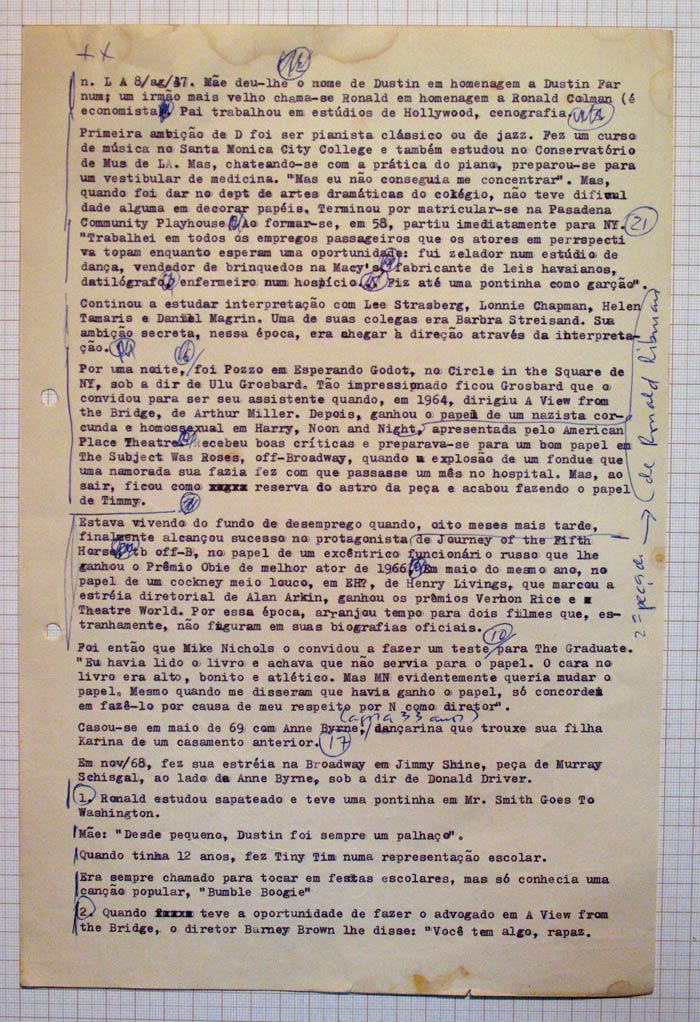 n. L A 8/ag/37. Mãe deu-lhe o nome de Dustin em homenagem a Dustin Far
num; um irmão mais velho chama-se Ronald em homenagem a Ronald Colman (é
economista Pai trabalhou em estúdios de Hollywood, cenografia.
Primeira ambição de D foi ser pianista clássico ou de jazz. Fez um curso
de música no Santa Monica City College e também estudou no Conservatório
de Mus de LA. Mas, chateando-se com a prática do piano, preparou-se para
um vestibular de medicina. "Mas eu não conseguia me concentrar". Mas,
quando foi dar no dept de artes dramáticas do colégio, não teve dificul
dade alguma em decorar papéis. Terminou por matricular-se na Pasadena
Community Playhouse Ao formar-se, em 58, partiu imediatamente para NY. 21
"Trabalhei em todos os empregos passageiros que os atores em perrspecti
va topam enquanto esperam uma oportunidade: fui zelador num estúdio de
dança, vendedor de brinquedos na Macy's fabricante de leis havaianos,
datilógrafo enfermeiro num hospício. Fiz até uma pontinha como garção".
Continou a estudar interpretação com Lee Strasberg, Lonnie Chapman, Helen
Tamaris e Daniel Magrin. Uma de suas colegas era Barbra Streisand. Sua
ambição secreta, nessa época, era chegar à direção através da interpreta
ção.
Por uma noite, foi Pozzo em Esperando Godot, no Circle in the Square de
NY, sob a dir de Ulu Grosbard. Tão impressipnado ficou Grosbard que o
convidou para ser seu assistente quando, em 1964, dirigiu A View from
the Bridge, de Arthur Miller. Depois, ganhou o papel de um nazista cor-
cunda e homossexual em Harry, Noon and Night, apresentada pelo American
Place Theatre Recebeu boas críticas e preparava-se para um bom papel em
The Subject Was Roses, off-Broadway, quando a explosão de um fondue que
uma namorada sua fazia fez com que passasse um mês no hospital. Mas, ao
sair, ficou como xxxxx reserva do astro da peça e acabou fazendo o papel
de Timmy.
2 = peças → (de Ronald Ribman)
Estava vivendo do fundo de desemprego quando, oito meses mais tarde,
finalmente alcançou sucesso no protagonista de Journey of the Fifth
Horse, tb off-B, no papel de um excêntrico funcionário russo que lhe
ganhou o Prêmio Obie de melhor ator de 1966. Em maio do mesmo ano, no
papel de um cockney meio louco, em EH?, de Henry Livings, que marcou a
estréia diretorial de Alan Arkin, ganhou os prêmios Verbon Rice e x
Theatre World. Por essa época, arranjou tempo para dois filmes que, es-
tranhamente, não figuram em suas biografias oficiais. 10
Foi então que Mike Nichols o convidou a fazer um teste para The Graduate.
"Eu havia lido o livro e achava que não servia para o papel. O cara no
livro era alto, bonito e atlético. Mas MN evidentemente queria mudar o
papel. Mesmo quando me disseram que havia ganho o papel, só concordei
em fazê-lo por causa de meu respeito por N como diretor".
(agora 33 anos)
Casou-se em maio de 69 com Anne Byrne, dançarina que trouxe sua filha
Karina de um casamento anterior. 17
Em nov/68, fez sua estréia na Broadway em Jimmy Shine, peça de Murray
Schisgal, ao lado da Anne Byrne, sob a dir de Donald Driver.
1. Ronald estudou sapateado e teve uma pontinha em Mr. Smith Goes To
Washington.
Mãe: "Desde pequeno, Dustin foi sempre um palhaço".
Quando tinha 12 anos, fez Tiny Tim numa representação escolar.
Era sempre chamado para tocar em festas escolares, mas só conhecia uma
canção popular, "Bumble Boogie"
2. Quando xxxxx teve a oportunidade de fazer o advogado em A View from
the Bridge, o diretor Barney Brown lhe disse: "Você tem algo, rapaz.